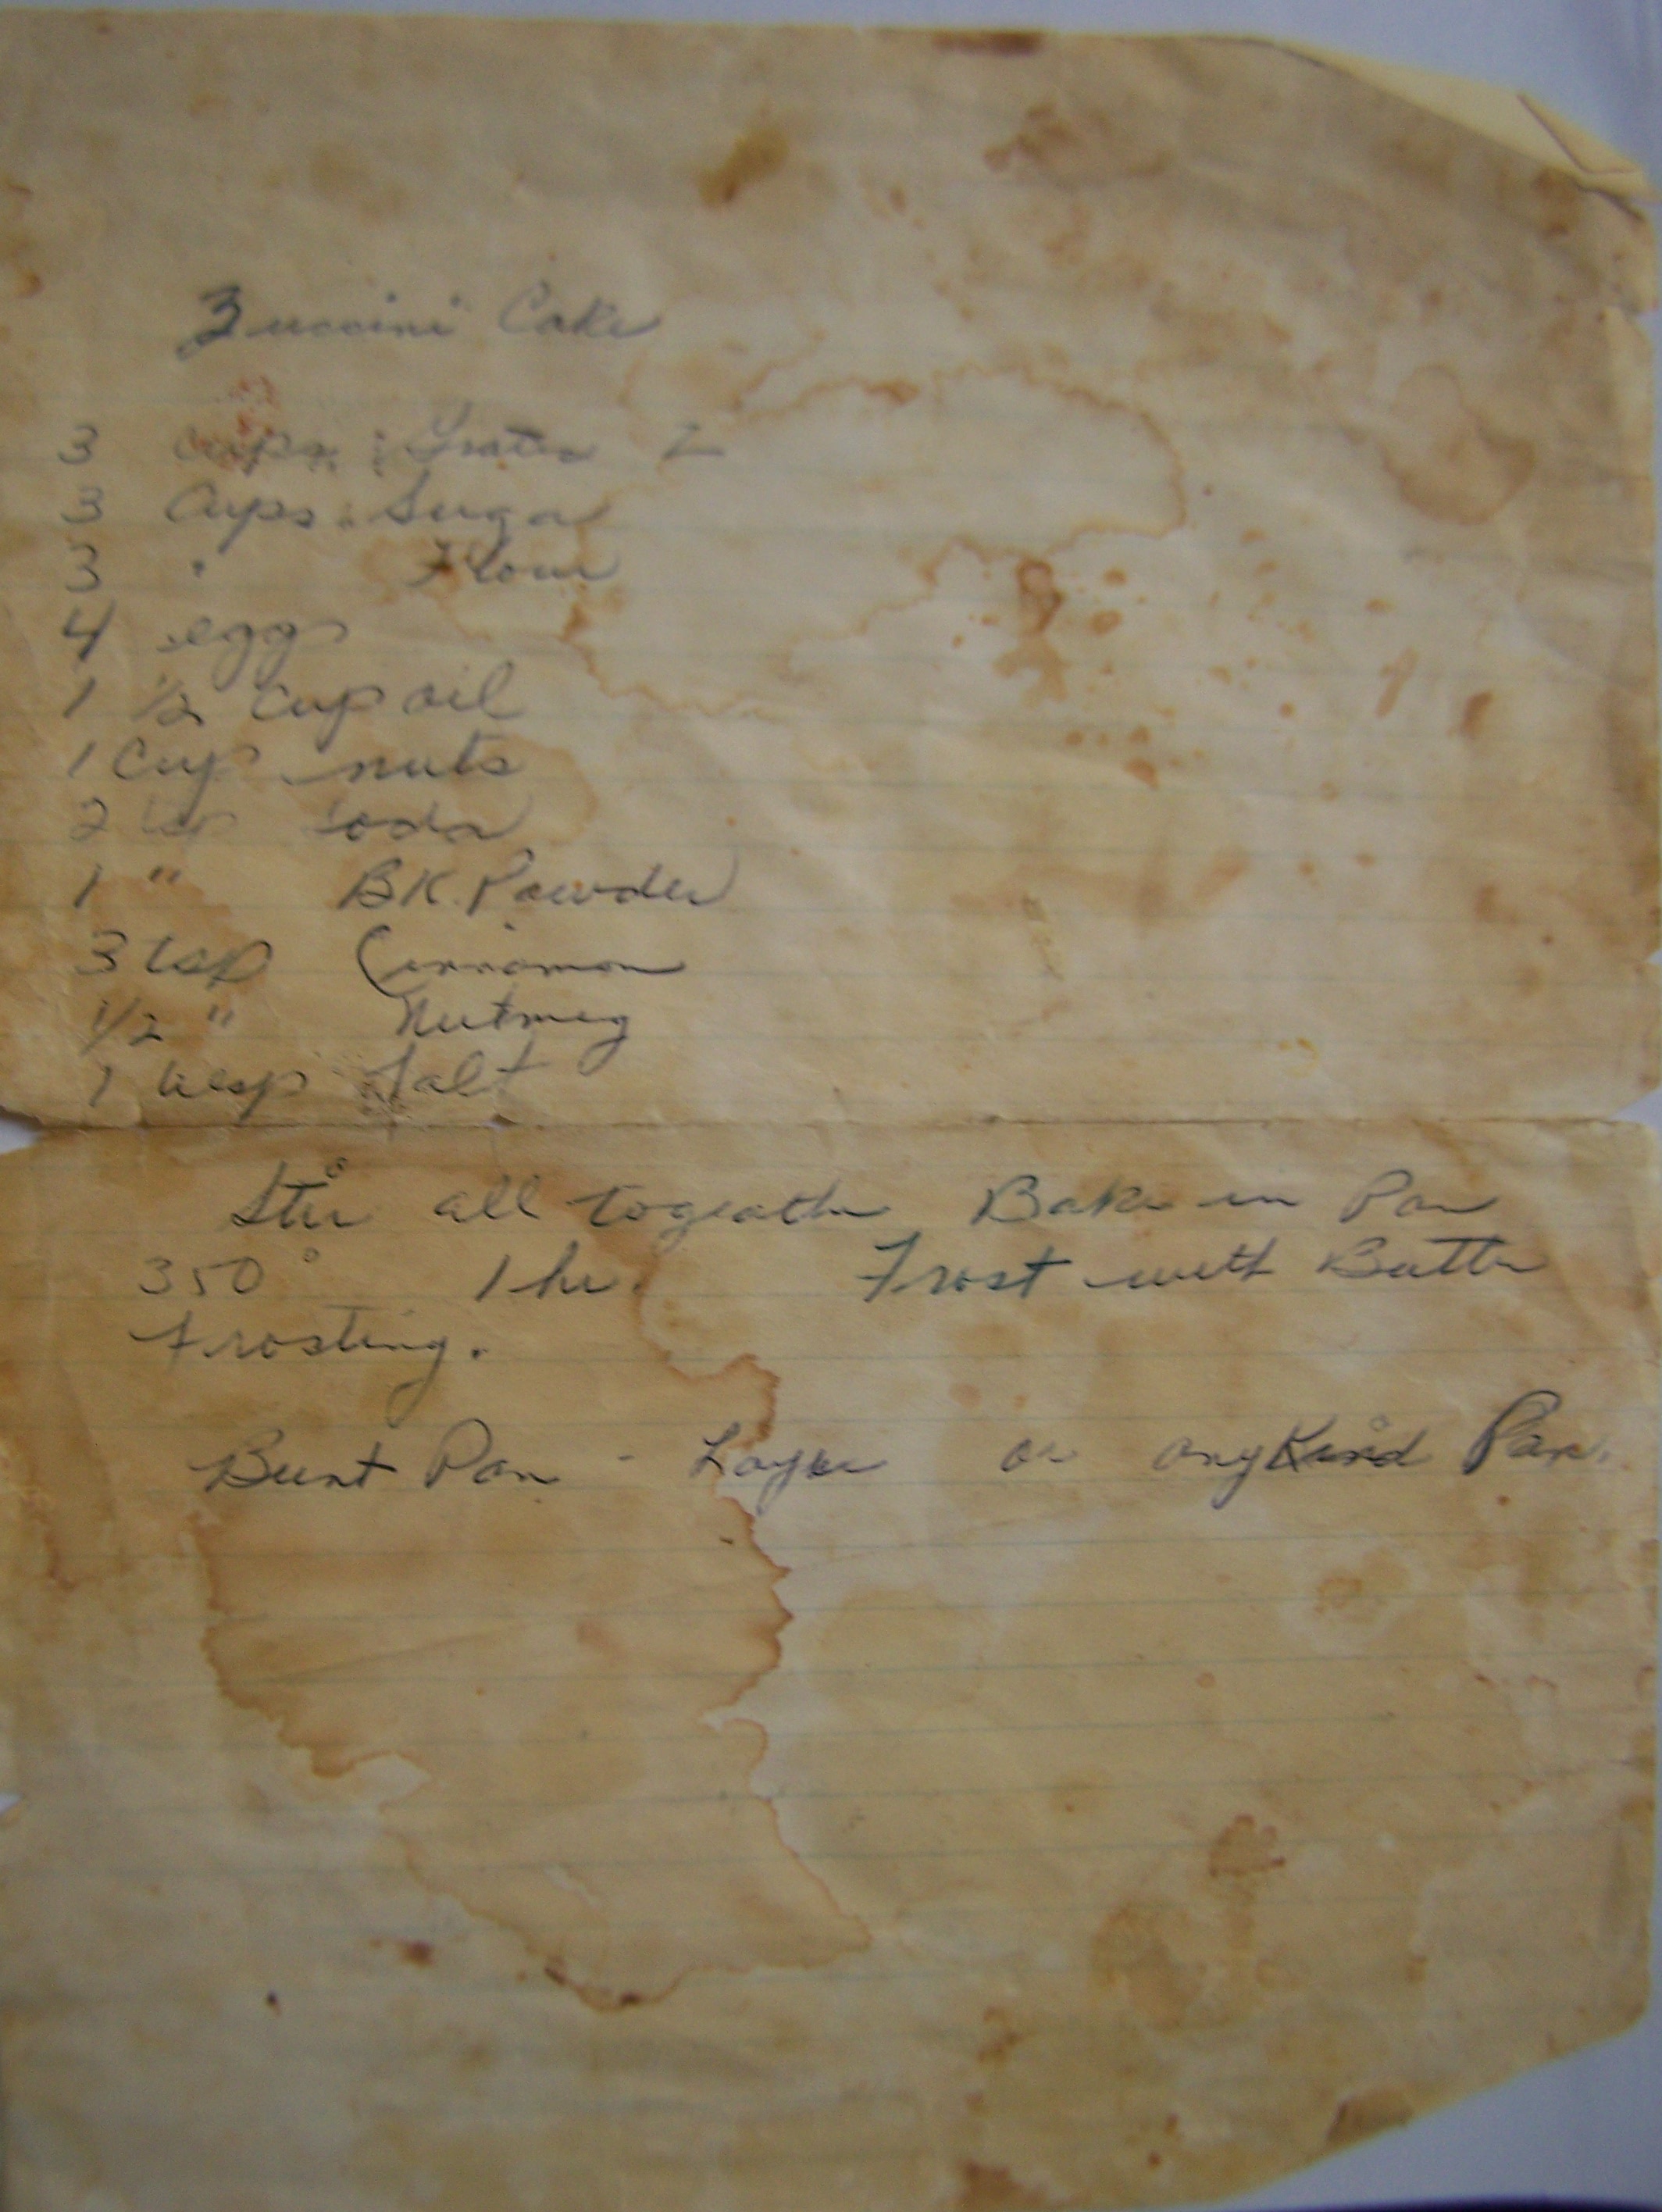 Zuccini Cake
3 cups Grated Z
3 Cups Sugar
3 " Flour
4 eggs
1 1/2 cup oil
1 Cup nuts
2 tsp Soda
1 " BK. Powder
3 tsp Cinnamon
1/2 " Nutmeg
1 Salt
Stir all togeather Bake in Pan
350° 1 hr. Frost with Butter
Frosting.
Bunt Pan - Layer or any Kind Pan.